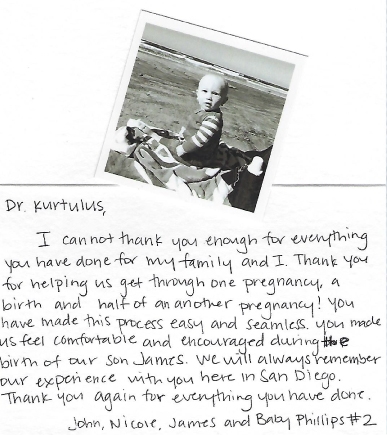 Dr. Kurtulus,
I cannot thank you enough for everything
you have done for my family and I. Thank you
for helping us get through one pregnancy, a
birth and half of an another pregnancy! You
have made this process easy and seamless. you made
us feel comfortable and encouraged during the
birth of our son James. We will always remember
our experience with you here in San Diego.
Thank you again for everything you have done.
John, Nicole, James and Baby Phillips #2